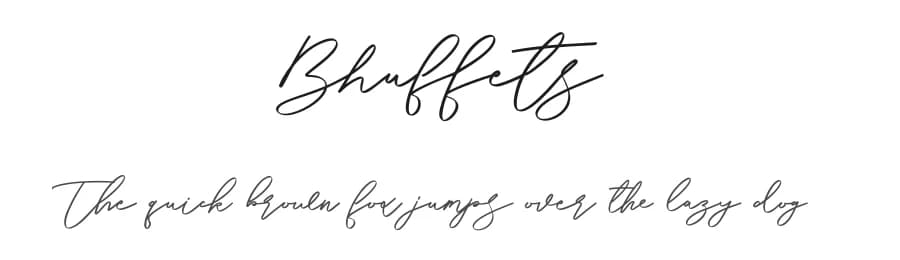 Bhuffets
The quick brown fox jumps over the lazy dog